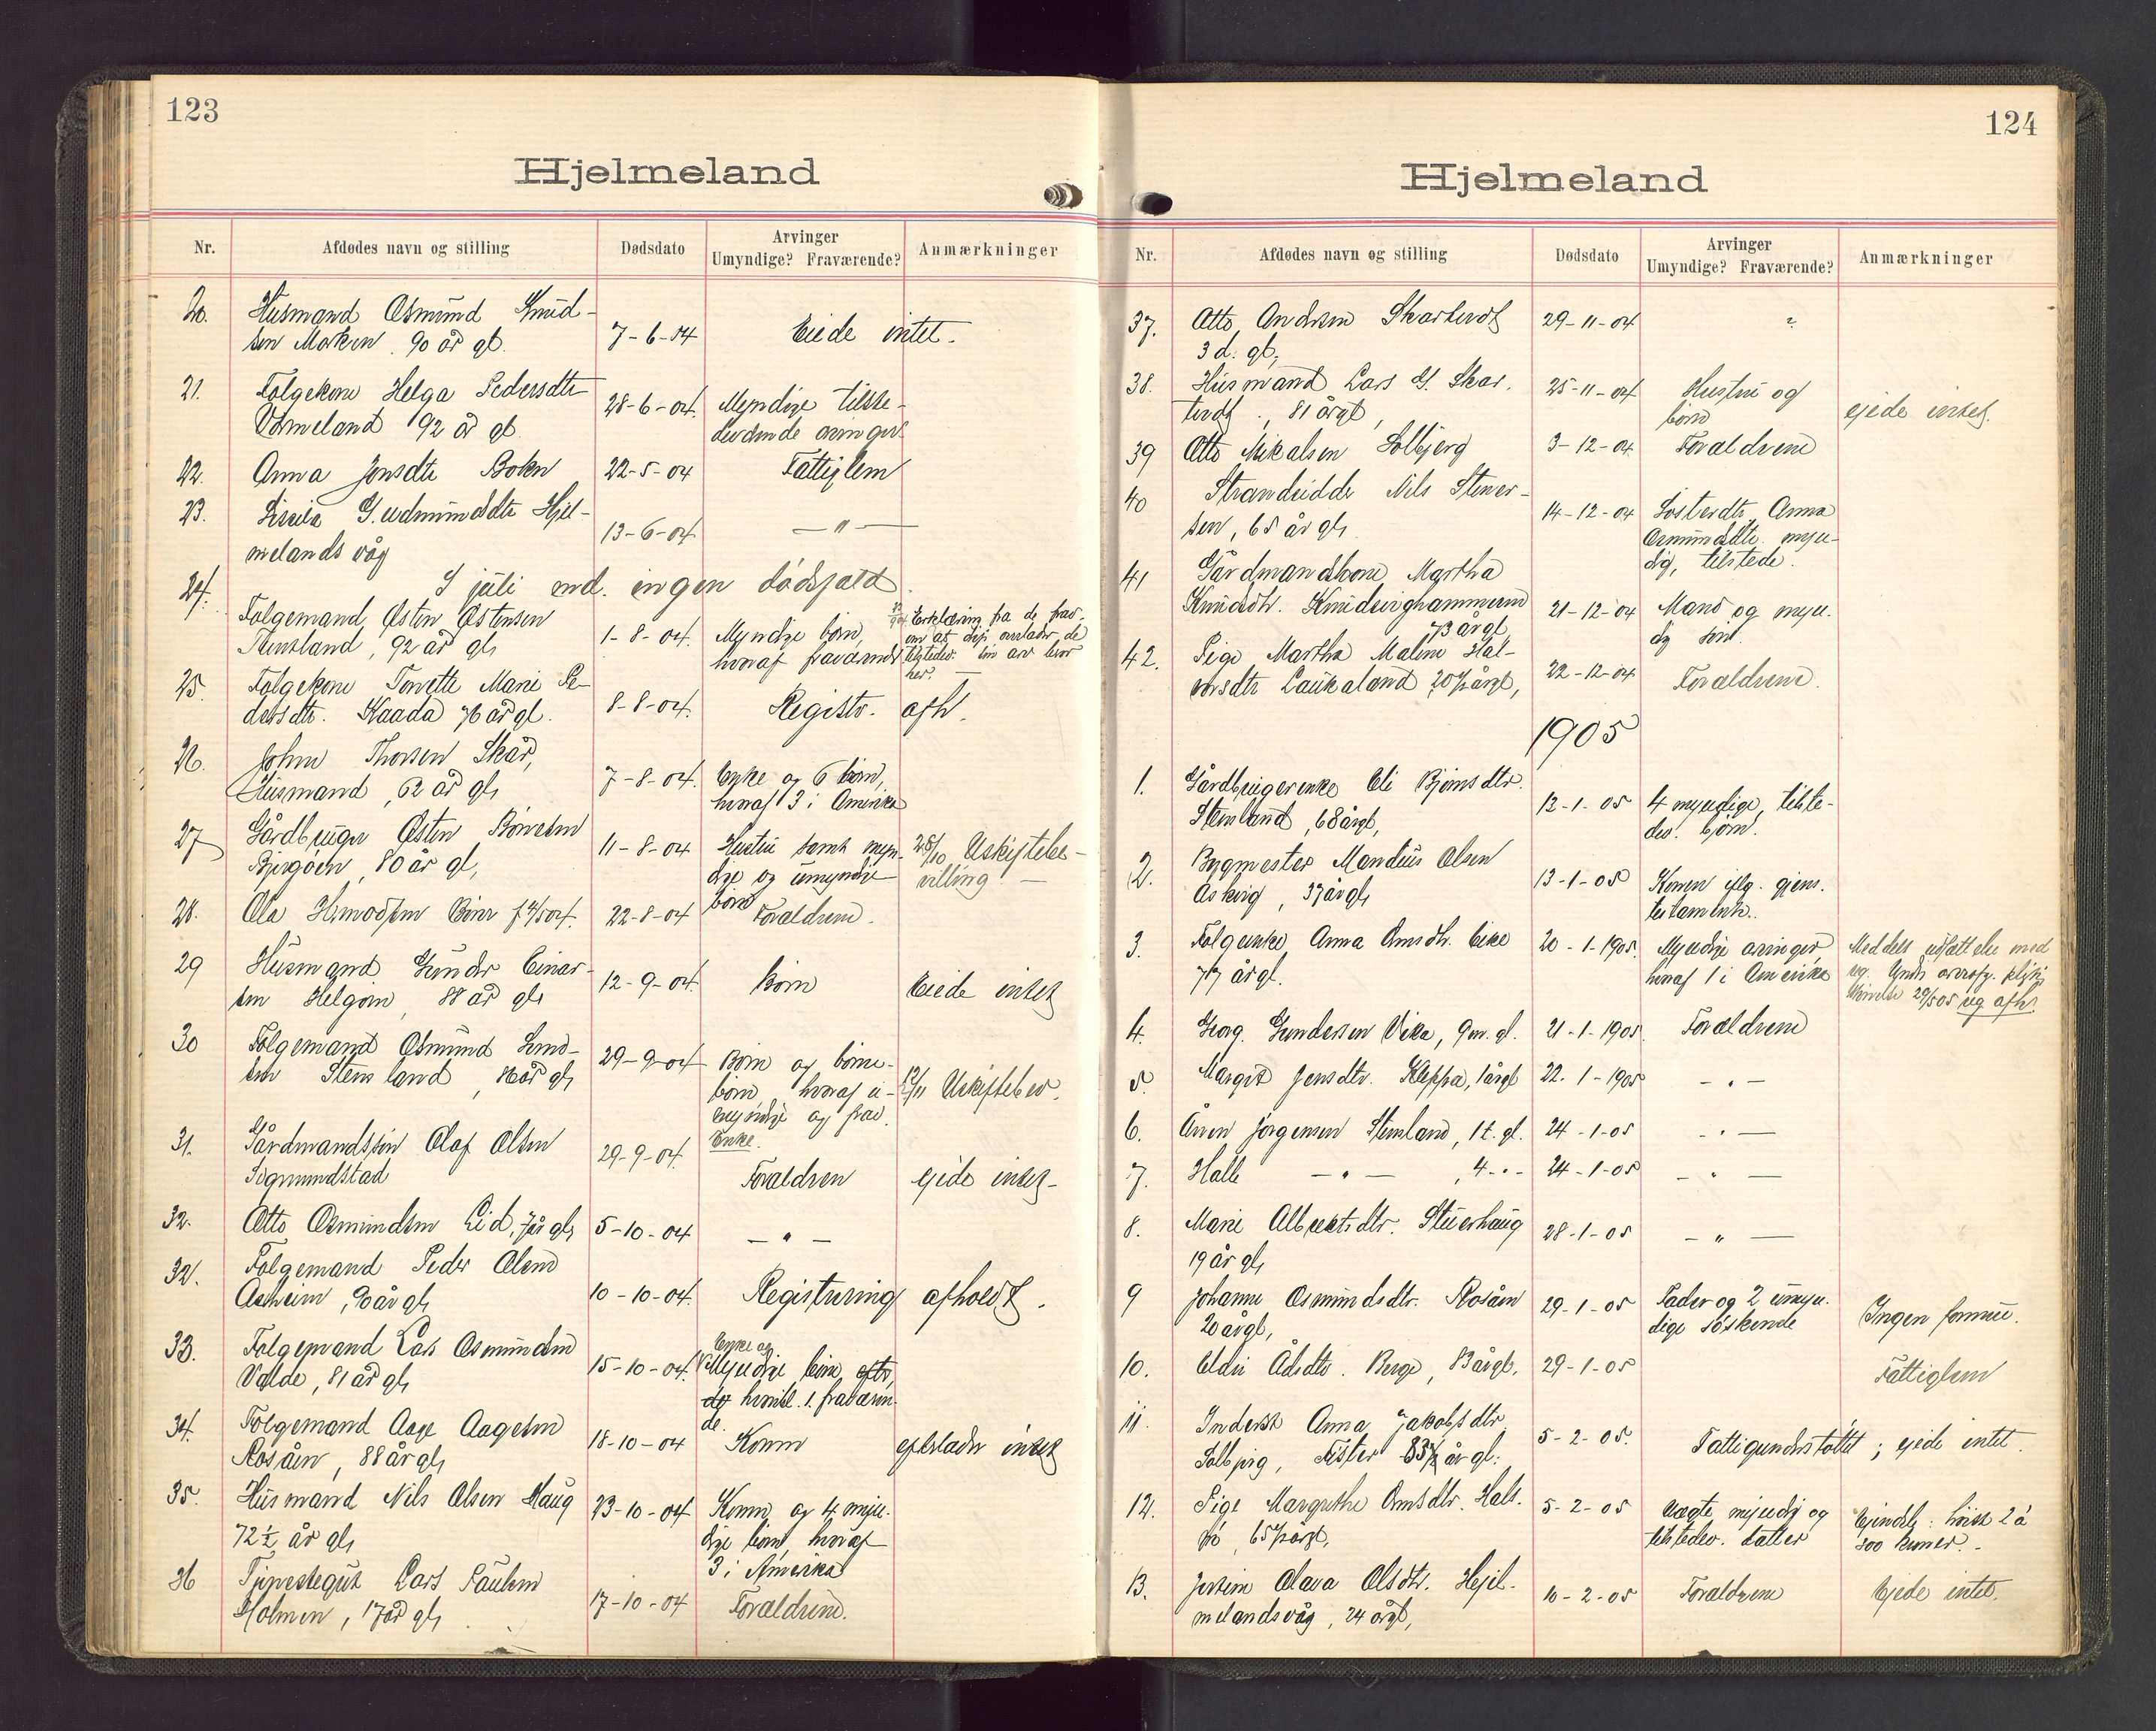 123
Hjelmeland
Nr. Afdødes navn og stilling Dødsdato Arvinger Umyndige? Fraværende? Anmærkninger
20. Husmand Osmund Knud-
sen Moken 90 år gl. 7-6-04 Eiede intet.
21. Folgekone Helga Pedersdtr
Vormeland 92 år gl. 28-6-04. Myndige tilste-
deværende
22. Anna Jonsdtr Bokn 22-5-04 Fattiglem
23. G.udmundsdtr Hjel-
melandsvåg 13-6-04 — " —
I juli md. ingen dødsfald.
24. Folgemand Østen Østensen
92 år gl, 1-8-04. Myndige børn,
hvoraf fraværende Erklæring fra de frav.
25. Folgekone Torvette Marie Pe-
dersdtr. Kaada 76 år gl. 8-8-04. Registr. afh.
26. John Thorsen Skår,
Husmand, 62 år gl, 7-8-04. Enke og 6 børn,
hvoraf 3 i Amerika
27 Gårdbruger Østen
80 år gl, 11-8-04 Hustru samt myn-
dige og umyndige
børn 28/10 Uskiftebe-
villing —
28. Ola 22-8-04 Forældrene.
29 Husmand Gunder Einar-
sen Helgøen, 88 år gl, 12-9-04. Børn Eiede intet
30 Folgemand Osmund
Stensland, 86 år gl, 29-9-04 Børn og børne-
børn, hvoraf u-
myndige og frav.
Enke. 12/11 Uskiftebev.
31. Gårdmandssøn Olaf Olsen
Sigmundstad 29-9-04. Forældren ejede intet-
32. Otto Osmundsen Eid, 7 år gl, 5-10-04 — " —
32. Folgemand Peder Olsen
Aasheim, 90 år gl, 10-10-04. Registrering afholdt.
33. Folgemand Lars Osmundsen
Valde, 81 år gl, 15-10-04. Enke og
Myndige børn, efter
hvoribl. 1. fraværen-
de.
34. Folgemand Aage Aagesen
Rosåen, 88 år gl, 18-10-04 Konen efterlader intet
35. Husmand Nils Olsen Haug
72½ år gl, 23-10-04 Konen og 4 myn-
dige børn, hvoraf
3 i Amerika
36 Tjenestegut Lars Paulsen
Holmen, 17 år gl, 17-10-04 Forældrene.
124
Hjelmeland
Nr. Afdødes navn og stilling Dødsdato Arvinger Umyndige? Fraværende? Anmærkninger
37. Otto Andersen Skartveidt
3 d. gl, 29-11-04 "
38. Husmand Lars G. Skar-
tveidt, 81 år gl, 25-11-04 Hustru og
børn ejede intet.
39 Otto Mikalsen Solbjerg 3-12-04 Forældrene
40 Strandsidder Nils Stener-
sen, 65 år gl, 14-12-04 Søsterdtr. Anna
Osmundsdtr. myn-
dig, tilstede.
41 Gårdmandskone Martha
Knudsdtr. Knudsvighammeren
73 år gl, 21-12-04 Mand og myn-
dig søn.
42. Pige Martha Malene Hal-
vorsdtr Laukaland 20½ år gl, 22-12-04 Forældrene.
1905
1. Gårdbrugerenke Eli Bjørnsdtr.
Stensland, 68 år gl, 12-1-05 4 myndige, tilste-
dev. børn.
2. Bygmester Mandius Olsen
Askvig, 37 år gl, 13-1-05 Konen iflg. gjens.
testamente.
3. Folgeenke Anna Amsdtr. Eike
77 år gl. 20-1-1905. Myndige arvinger,
hvoraf 1 i Amerika Meddelt udsættelse med
29/5 05 reg. afh.
4. Georg Gundersen Vika, 9 m. gl. 21-1-1905 Forældrene
5 Margit Jensdtr. Kleppa, 1 år gl 22.1-1905 — " —
6. Åsven Jørgensen Stensland, 1 t. gl. 24-1-05 — " —
7. Halle — " —, 4 - " - 24-1-05 — " —
8. Marie Albrektsdtr. Stuerhaug
19 år gl, 28-1-05 — " —
9 Johanne Osmundsdtr. Rosåen
20 år gl, 29-1-05 Fader og 2 umyn-
dige søskende Ingen formue.
10. Eldri Ådsdtr. Berge, 83 år gl. 29-1-05 Fattiglem
11. Inderst Anna Jakobsdtr
Solbjerg, Fister 83½ år gl: 5-2-05. Fattigunderstøttet; ejede intet.
12. Pige Margrethe Amsdtr. Hals-
nø, 65½ år gl, 5-2-05 Uægte myndig og
tilstedev. datter Eiendele: høist 2 à
300 kroner. -
13. Olava Olsdtr. Hjel-
melandsvåg, 24 år gl, 10-2-05 Forældrene Ejede intet.